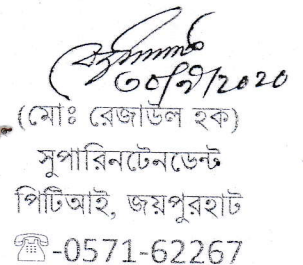 ৩০/৭/২০২০
(মোঃ রেজাউল হক)
সুপারিনটেনডেন্ট
পিটিআই, জয়পুরহাট
☎-0571-62267